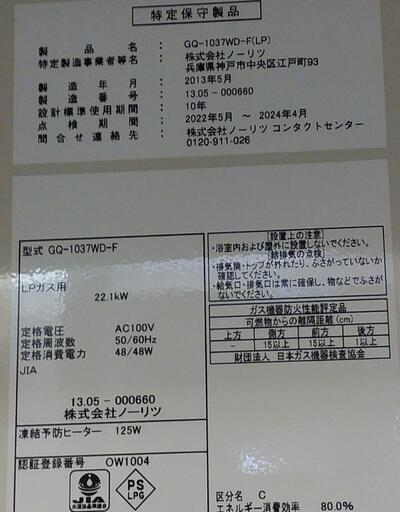 特定保守製品
製品名 : GQ-1037WD-F(LP)
特定製造事業者等名 : 株式会社ノーリツ
兵庫県神戸市中央区江戸町93
製造年月 : 2013年5月
製造番号 : 13.05-000660
設計標準使用期間 : 10年
点検期間 : 2022年5月 ～ 2024年4月
問合せ連絡先 : 株式会社ノーリツ コンタクトセンター
0120-911-026
型式 GQ-1037WD-F
LPガス用
22.1kW
定格電圧 AC100V
定格周波数 50/60Hz
定格消費電力 48/48W
JIA
13.05-000660
株式会社ノーリツ
凍結予防ヒーター 125W
認証登録番号 OW1004
JIA
PS
LPG
[設置上の注意]
・浴室内および屋外に設置しないでください。
[給排気の点検]
・排気筒・トップが外れたり、ふさがっていないか
確認してください。
・給気口・排気口は常に確保し、物などでふさが
ないでください。
ガス機器防火性能評定品
可燃物からの離隔距離(cm)
上方 側方 前方 後方
- 15以上 15以上 1以上
財団法人 日本ガス機器検査協会
区分名 C
エネルギー消費効率 80.0%